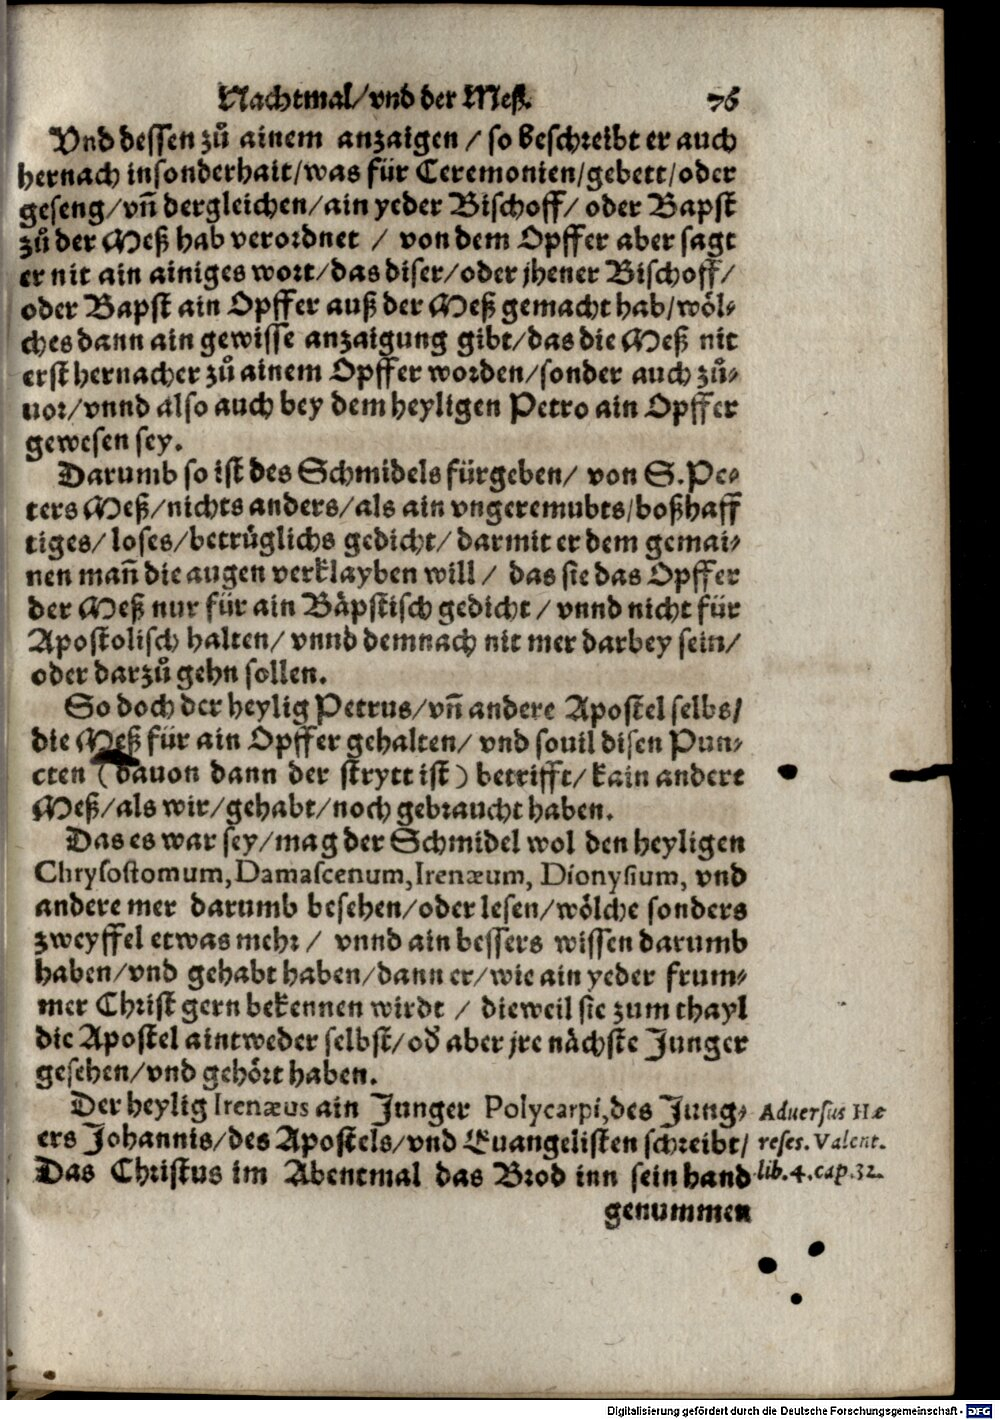 Nachtmal/vnd der Meß. 76
Vnd dessen zů ainem anzaigen / so beschreibt er auch
hernach insonderhait/was für Ceremonien/gebett/oder
geseng/vñ dergleichen/ain yeder Bischoff/ oder Bapst
zů der Meß hab verordnet / von dem Opffer aber sagt
er nit ain ainiges wort/das diser/oder jhener Bischoff/
oder Bapst ain Opffer auß der Meß gemacht hab/wöl-
ches dann ain gewisse anzaigung gibt/das die Meß nit
erst hernacher zů ainem Opffer worden/sonder auch zů-
uor/vnnd also auch bey dem heyligen Petro ain Opffer
gewesen sey.
Darumb so ist des Schmidels fürgeben/ von S. Pe-
ters Meß/nichts anders/als ain vngeremubts/boßhaff
tiges/loses/betrüglichs gedicht/ darmit er dem gemai-
nen mañ die augen verklayben will / das sie das Opffer
der Meß nur für ain Bäpstisch gedicht / vnnd nicht für
Apostolisch halten/ vnnd demnach nit mer darbey sein/
oder darzů gehn sollen.
So doch der heylig Petrus/vñ andere Apostel selbs/
die Meß für ain Opffer gehalten/ vnd souil disen Pun-
cten (dauon dann der strytt ist) betrifft/kain andere
Meß/als wir/gehabt/noch gebraucht haben.
Das es war sey/mag der Schmidel wol den heyligen
Chrysostomum, Damascenum, Irenæum, Dionysium, vnd
andere mer darumb besehen/oder lesen/wölche sonders
zweyffel etwas mehr / vnnd ain bessers wissen darumb
haben/vnd gehabt haben/dann er/wie ain yeder frum-
mer Christ gern bekennen wirdt / dieweil sie zum thayl
die Apostel aintweder selbst/oď aber jre nächste Junger
gesehen/vnd gehört haben.
Der heylig Irenæus ain Junger Polycarpi, des Jung-
ers Johannis/des Apostels/vnd Euangelisten schreibt/
Das Christus im Abentmal das Brod inn sein hand
genummen
Aduersus Hæ
reses. Valent.
lib. 4. cap. 32.
Digitalisierung gefördert durch die Deutsche Forschungsgemeinschaft - DFG